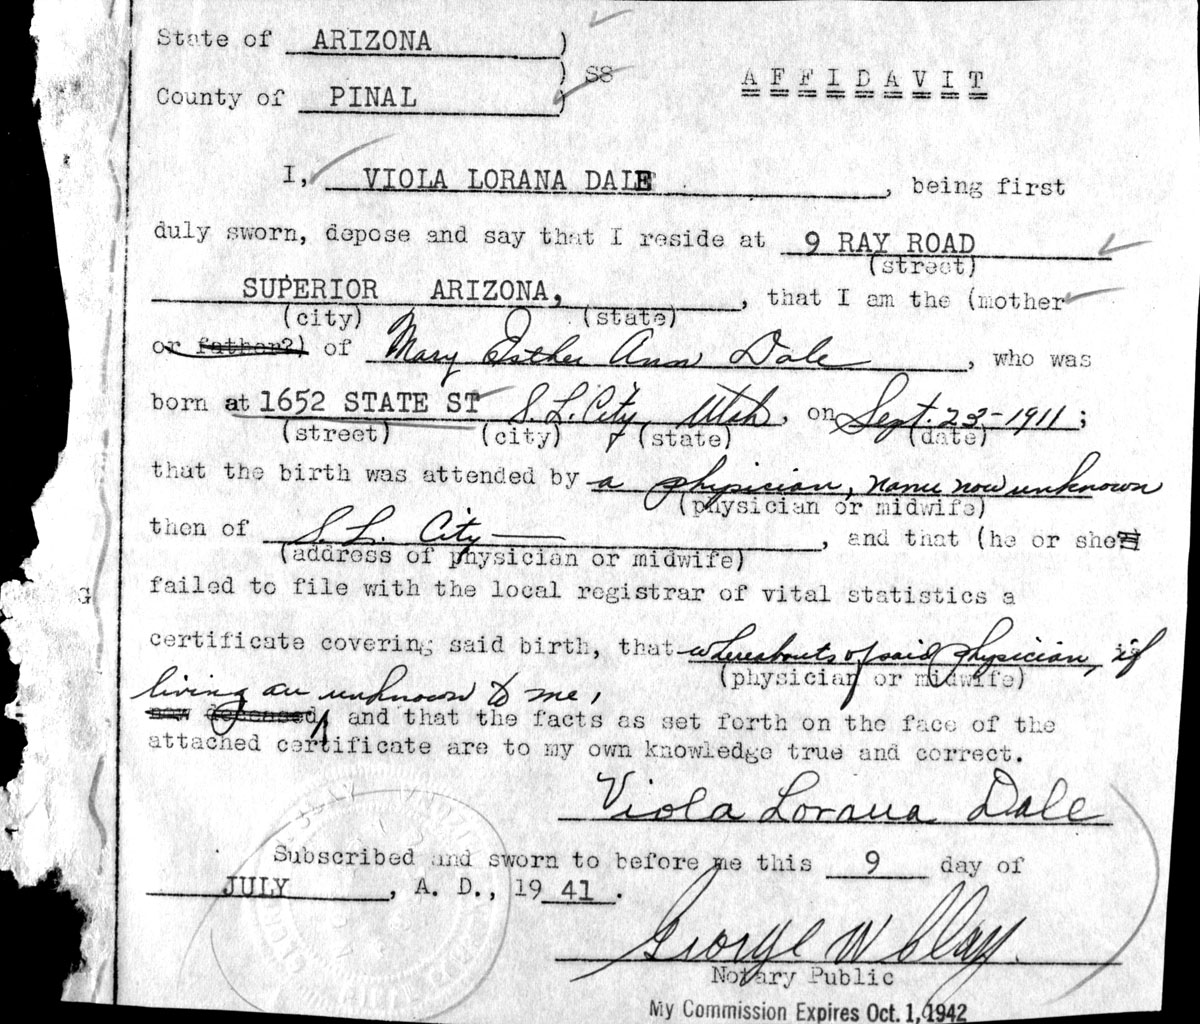 State of ARIZONA )
) SS
AFFIDAVIT
County of PINAL )
I, VIOLA LORANA DALE, being first
duly sworn, depose and say that I reside at 9 RAY ROAD
(street)
SUPERIOR ARIZONA, , that I am the (mother
(city) (state)
or father?) of Mary Esther Ann Dale, who was
born at 1652 STATE ST S. L. City Utah, on Sept. 23-1911;
(street) (city) (state) (date)
that the birth was attended by a physician, name now unknown
(physician or midwife)
then of S. L. City , and that (he or she?)
(address of physician or midwife)
failed to file with the local registrar of vital statistics a
certificate covering said birth, that whereabouts of said physician, if
(physician or midwife)
living are unknown to me,
now deceased, and that the facts as set forth on the face of the
attached certificate are to my own knowledge true and correct.
Viola Lorana Dale
Subscribed and sworn to before me this 9 day of
JULY, A. D., 1941.
George W Clay
Notary Public
My Commission Expires Oct. 1, 1942
G